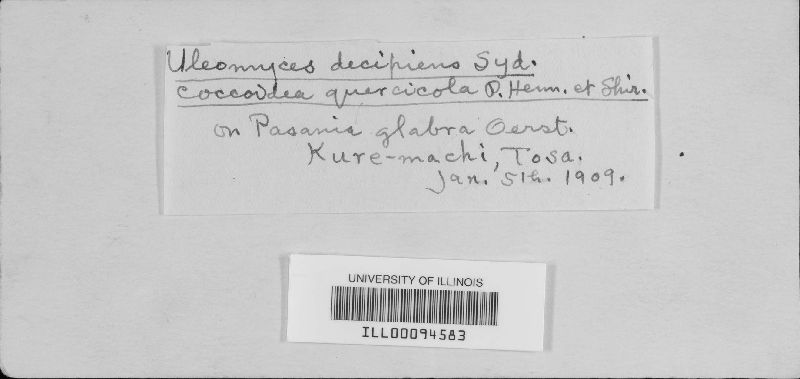 Uleomyces decipiens Syd.
Coccoidea quercicola P. Henn. et Shir.
on Pasania glabra Oerst.
Kure-machi, Tosa.
Jan. 5th. 1909.
UNIVERSITY OF ILLINOIS
ILL00094583